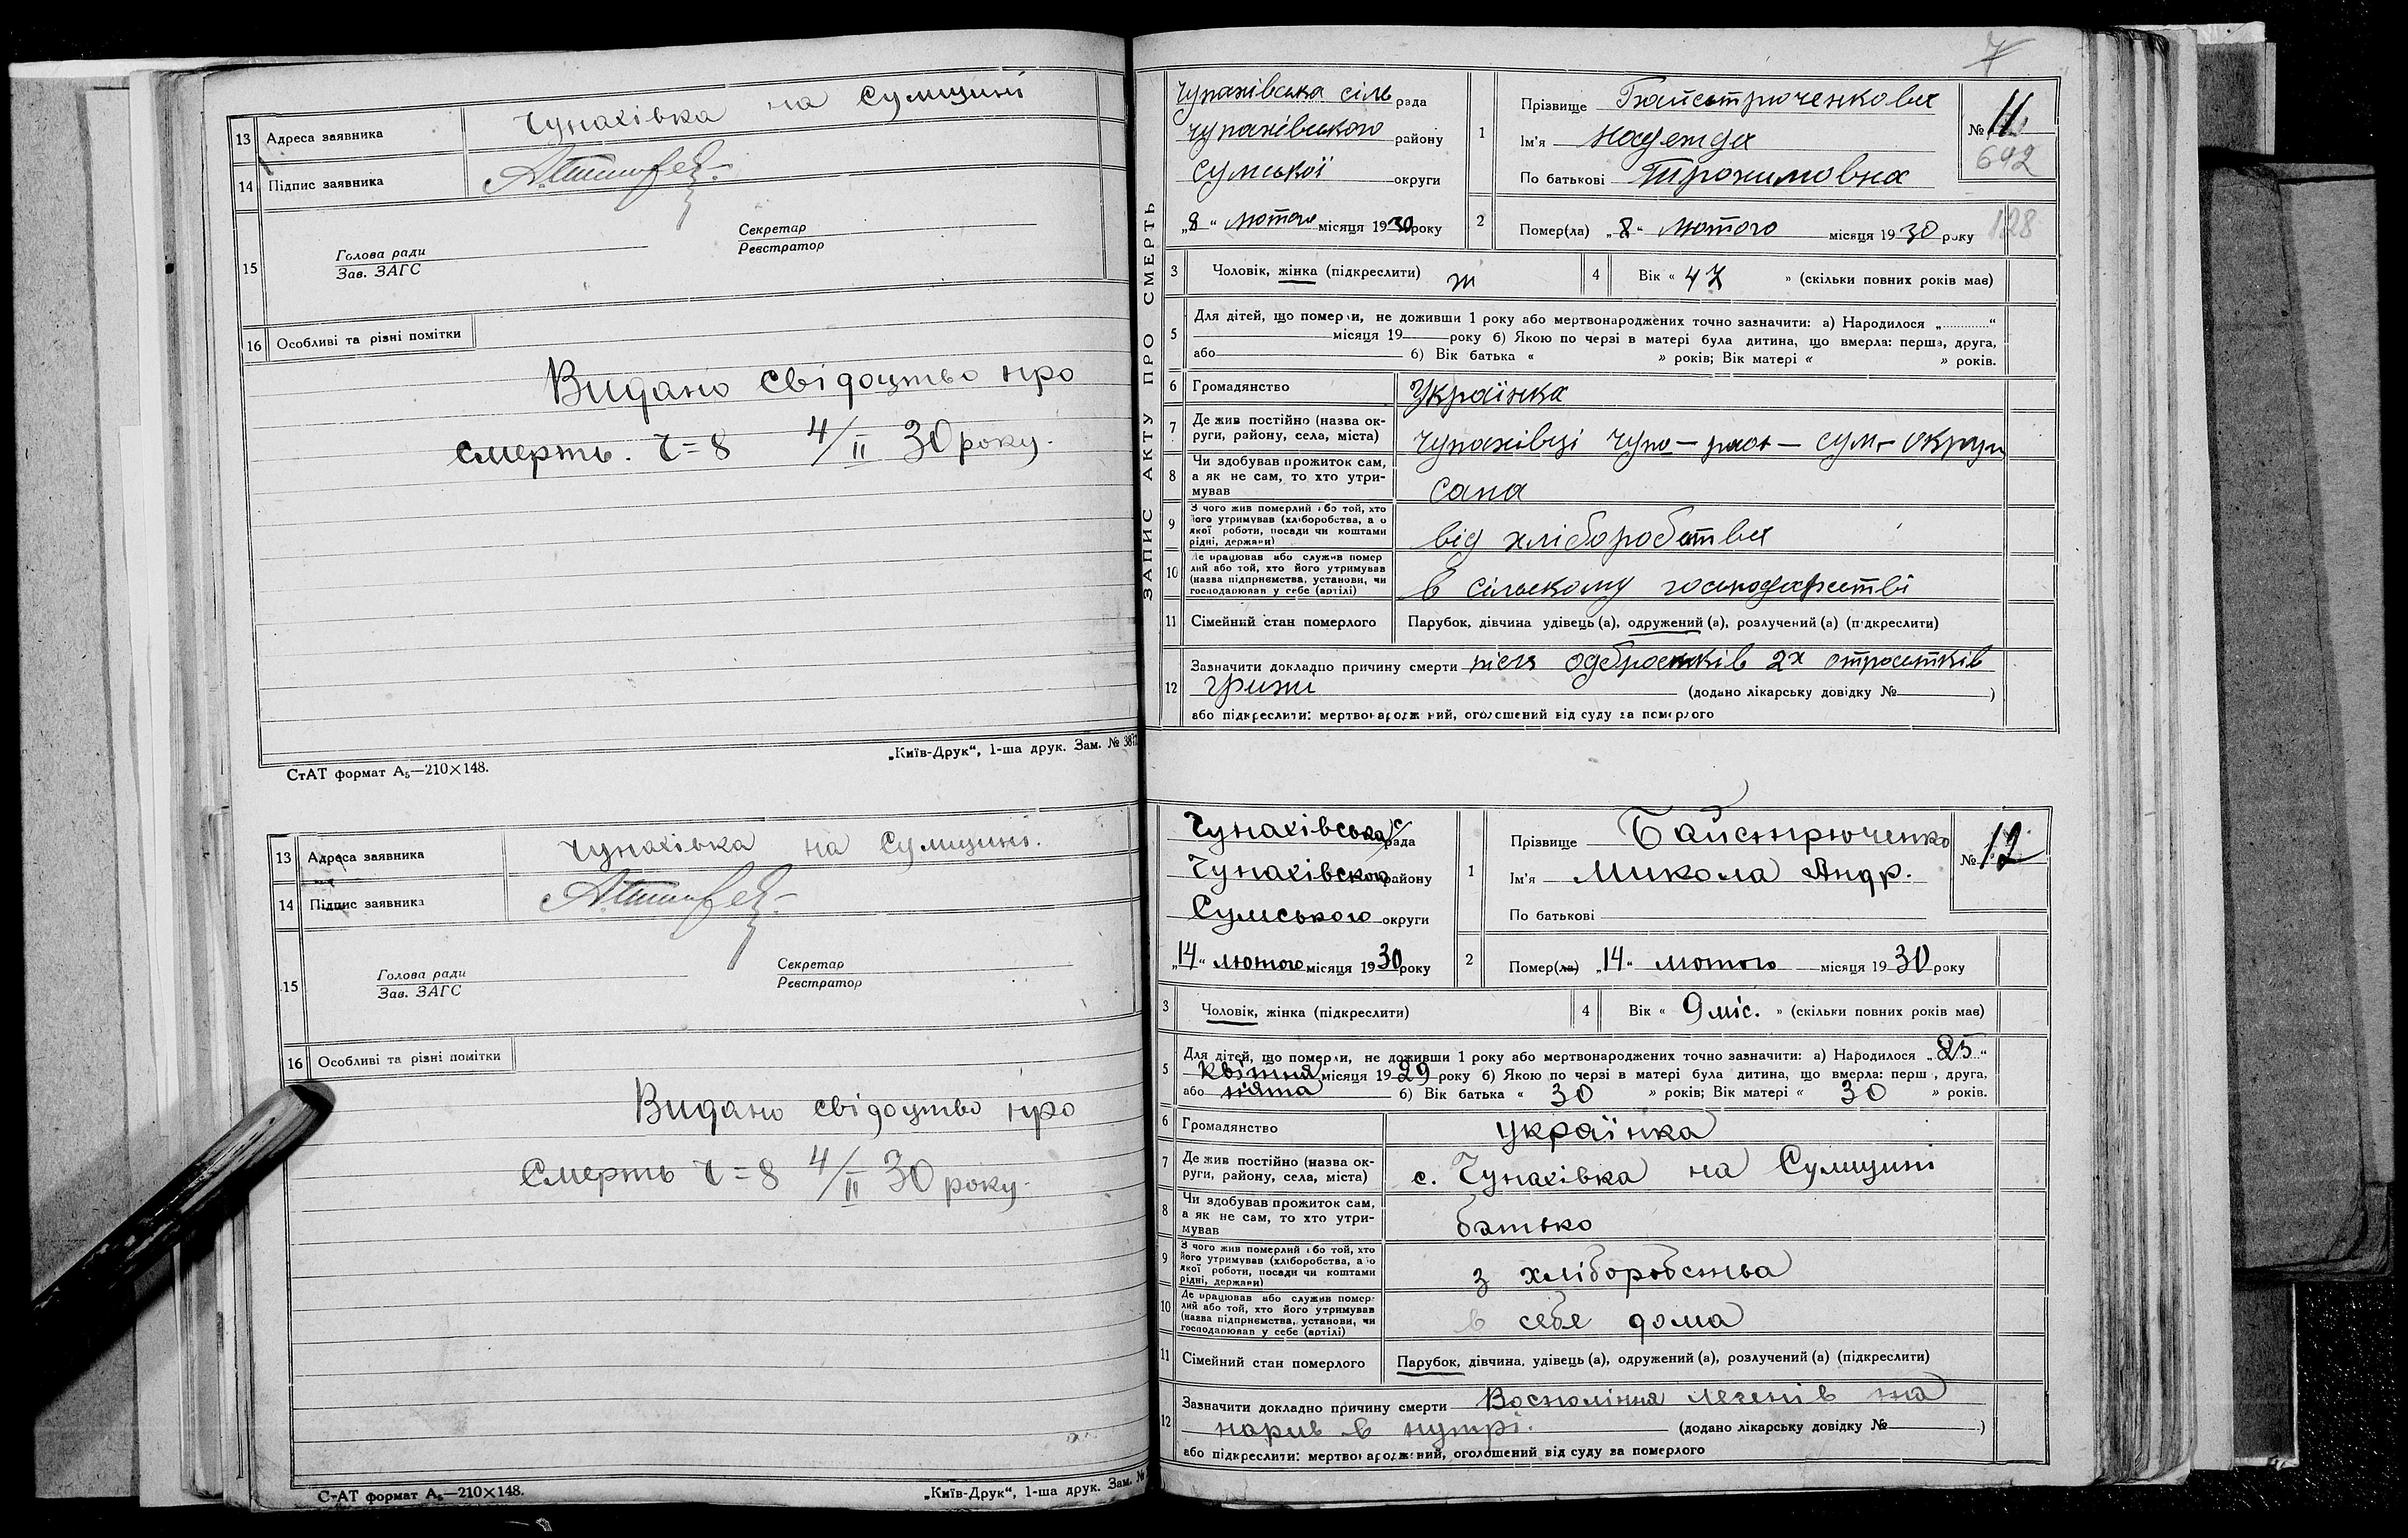 13 Адреса заявника Чупахівка на Сумщині
14 Підпис заявника
15 Голова ради
Зав. ЗАГС
Секретар
Реєстратор
16 Особливі та різні помітки
Видано свідоцтво про
смерть. Ч=8 4/II 30 року.
СтАТ формат А₅—210×148.
„Київ-Друк“, 1-ша друк. Зам. №
13 Адреса заявника Чупахівка на Сумщині.
14 Підпис заявника
15 Голова ради
Зав. ЗАГС
Секретар
Реєстратор
16 Особливі та різні помітки
Видано свідоцтво про
Смерть Ч=8 4/II 30 року.
СтАТ формат А₅—210×148.
„Київ-Друк“, 1-ша друк. Зам. №
7
ЗАПИС АКТУ ПРО СМЕРТЬ
Чупахівська сіль рада
Чупахівського району
Сумської округи
„8“ лютого місяця 1930 року
1 Прізвище Байстрюченкова
Ім'я Надежда
По батькові Трохимовна
№ 11
692
128
2 Помер(ла) „8“ лютого місяця 1930 року
3 Чоловік, жінка (підкреслити) ж
4 Вік « 47 » (скільки повних років має)
5 Для дітей, що померли, не доживши 1 року або мертвонароджених точно зазначити: а) Народилося „ “
місяця 19 року б) Якою по черзі в матері була дитина, що вмерла: перша, друга,
або б) Вік батька « » років; Вік матері « » років.
6 Громадянство Українка
7 Де жив постійно (назва ок-
руги, району, села, міста) Чупахівці Чупа – район – сум – округи
8 Чи здобував прожиток сам,
а як не сам, то хто утри-
мував сама
9 З чого жив померлий або той, хто
його утримував (хліборобства, або
якої роботи, посади чи коштами
рідні, держави) від хліборобства
10 Де працював або служив помер
лий або той, хто його утримував
(назва підприємства, установи, чи
господарював у себе (артілі) в сільскому господарстві
11 Сімейний стан померлого Парубок, дівчина удівець (а), одружений (а), розлучений (а) (підкреслити)
12 Зазначити докладно причину смерти 2х отростків
грижі (додано лікарську довідку № )
або підкреслити: мертвонароджений, оголошений від суду за померлого
Чупахівська с/рада
Чупахівского району
Сумського округи
„14“ лютого місяця 1930 року
1 Прізвище Байстрюченко
Ім'я Микола Андр.
По батькові
№ 12
2 Помер(ла) „14“ лютого місяця 1930 року
3 Чоловік, жінка (підкреслити)
4 Вік « 9 міс. » (скільки повних років має)
5 Для дітей, що померли, не доживши 1 року або мертвонароджених точно зазначити: а) Народилося „25“
квітня місяця 1929 року б) Якою по черзі в матері була дитина, що вмерла: перш , друга,
або пята б) Вік батька « 30 » років; Вік матері « 30 » років.
6 Громадянство українка
7 Де жив постійно (назва ок-
руги, району, села, міста) с. Чупахівка на Сумщині
8 Чи здобував прожиток сам,
а як не сам, то хто утри-
мував батько
9 З чого жив померлий або той, хто
його утримував (хліборобства, або
якої роботи, посади чи коштами
рідні, держави) з хліборобства
10 Де працював або служив помер
лий або той, хто його утримував
(назва підприємства, установи, чи
господарював у себе (артілі) в себе дома
11 Сімейний стан померлого Парубок, дівчина, удівець (а), одружений (а), розлучений (а) (підкреслити)
12 Зазначити докладно причину смерти Воспоління легенів та
нарив в нутрі. (додано лікарську довідку № )
або підкреслити: мертвонароджений, оголошений від суду за померлого